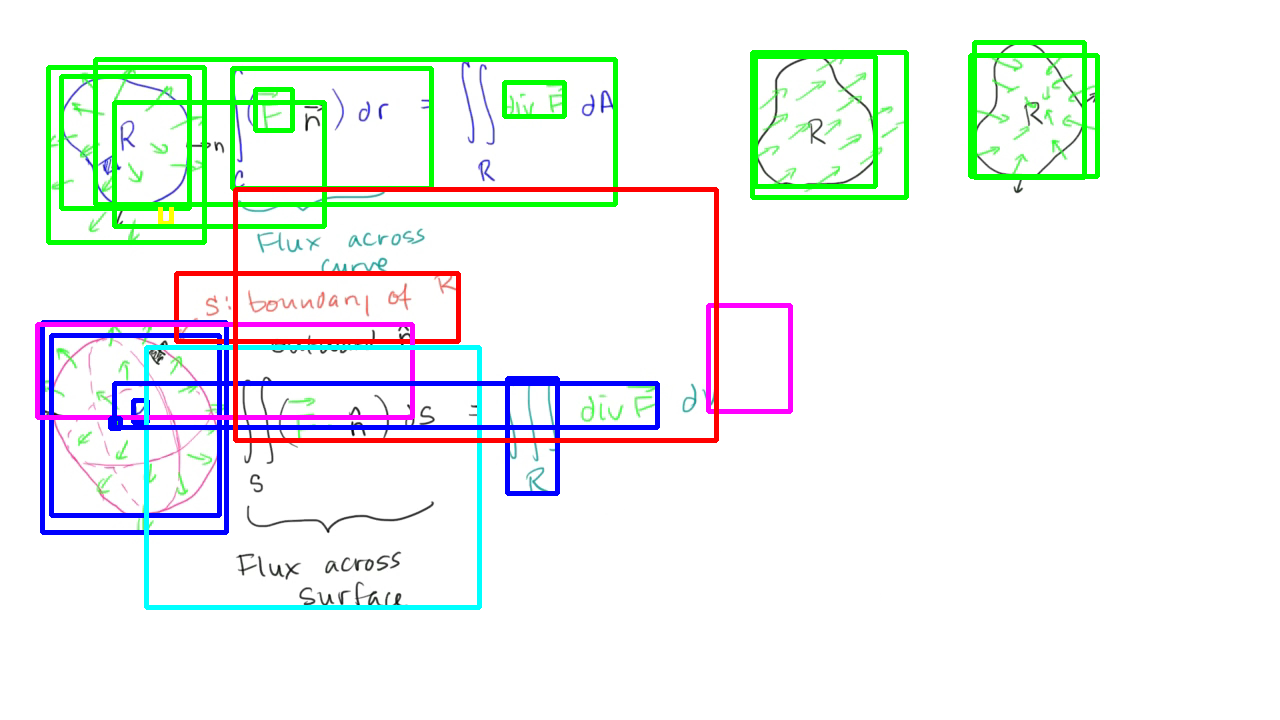 R
n
∫_C (F⃗ · n⃗) dr = ∬_R div F⃗ dA
R
R
Flux across
curve
S: boundary of R
outward n̂
∬_S (F⃗ · n̂) ds = ∭_R div F⃗ dV
Flux across
surface